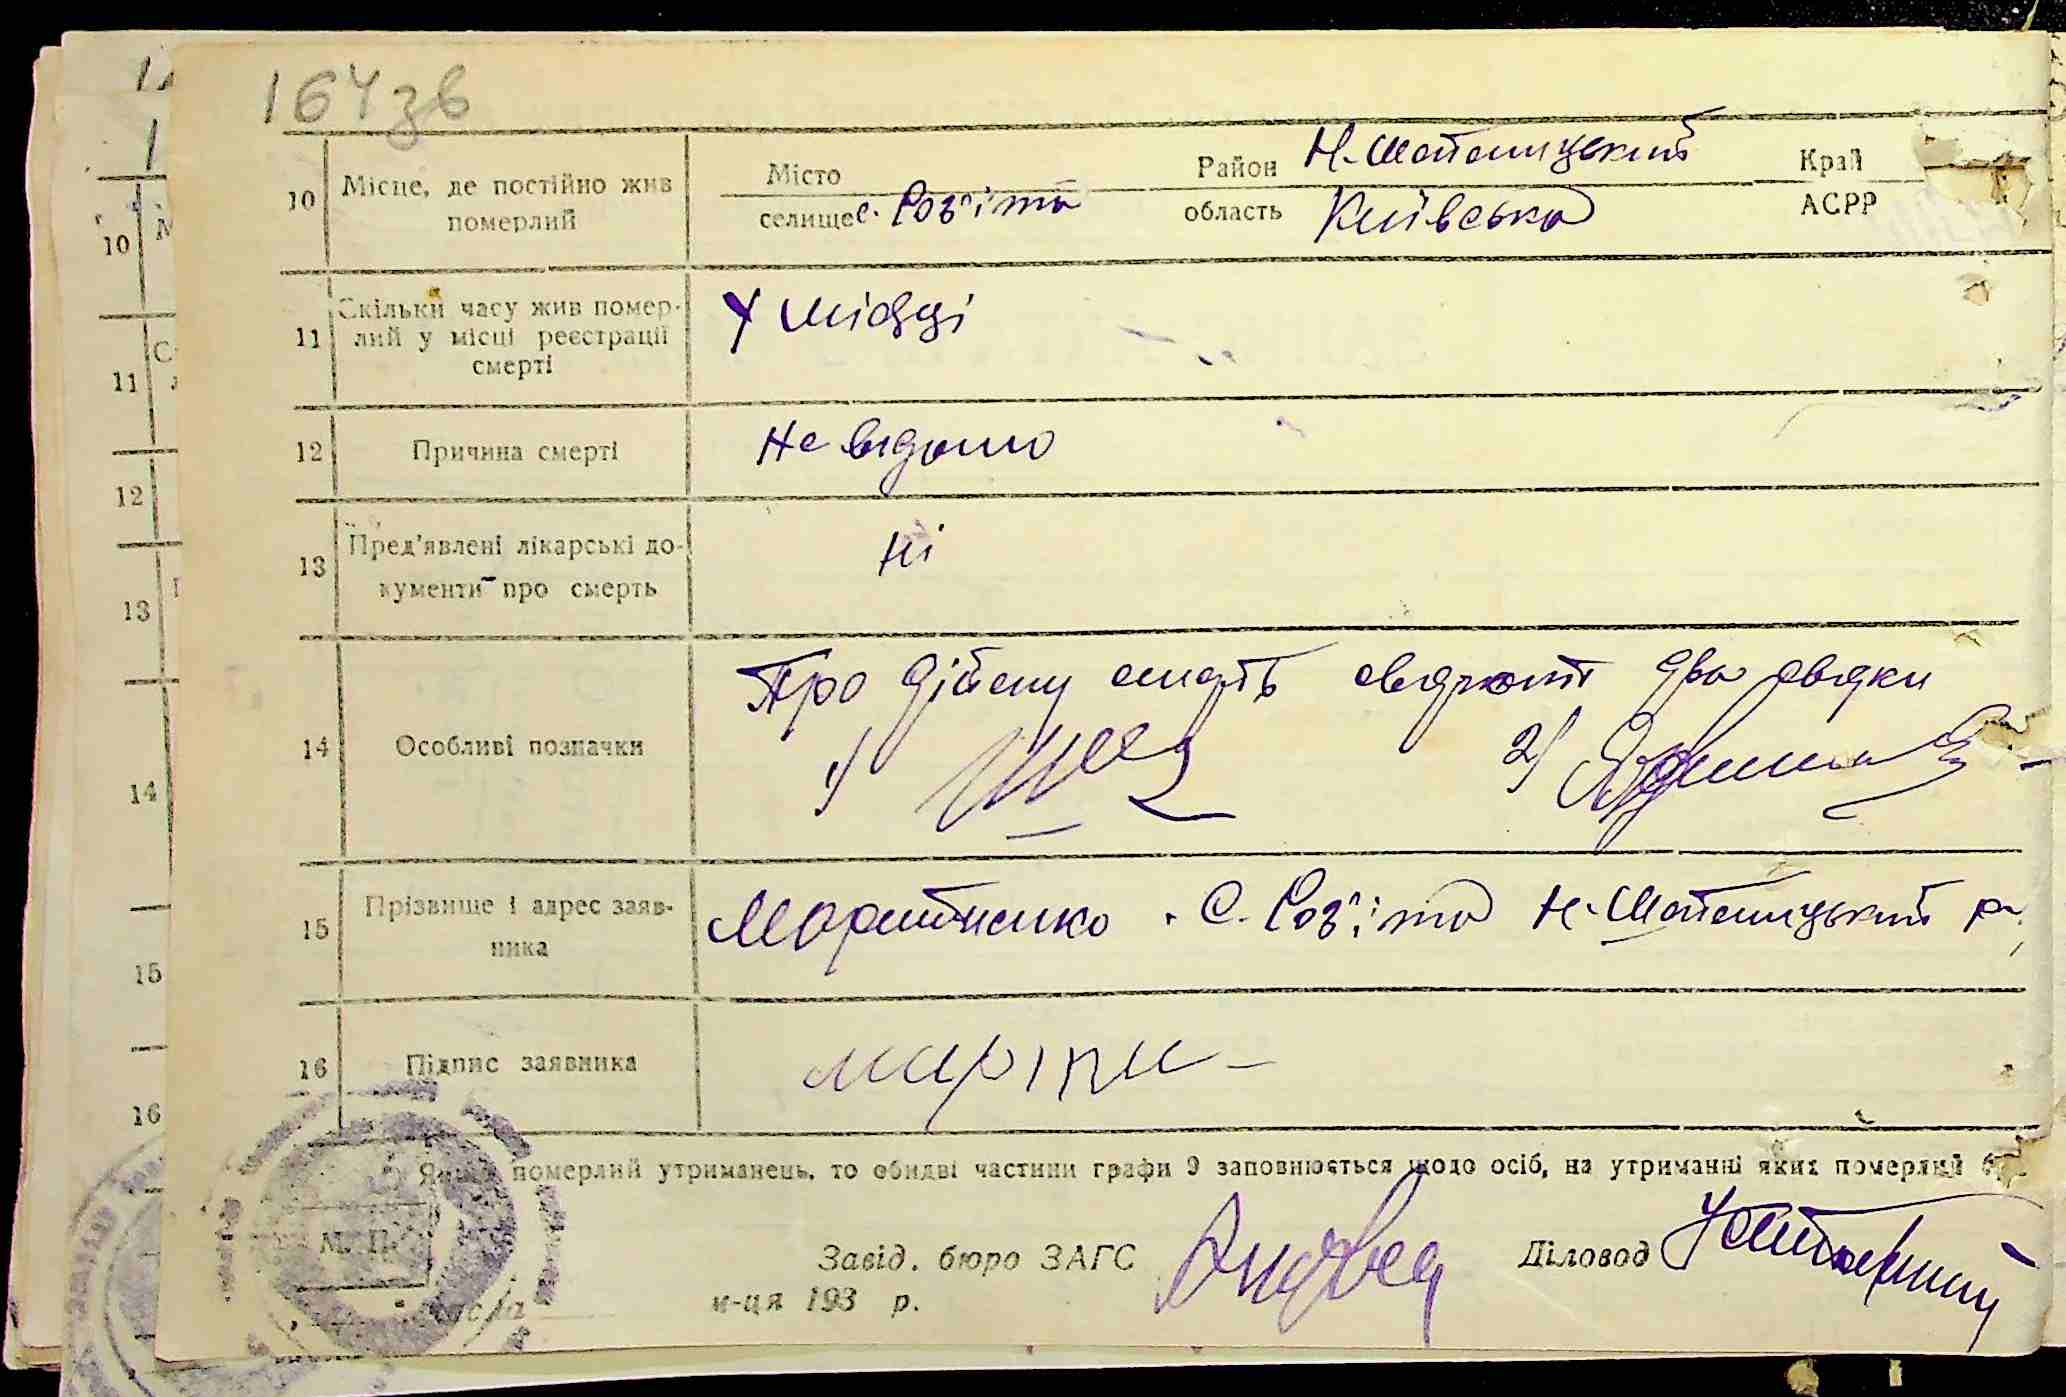 164зв
10 Місце, де постійно жив померлий
Місто
селище с. Роз'їта
Район Н-Шепелицький
область Київська
Край
АСРР
11 Скільки часу жив помер-
лий у місці реєстрації
смерті
У місяці
12 Причина смерті
Не відомо
13 Пред'явлені лікарські до-
кументи про смерть
Ні
14 Особливі позначки
Про дійсну смерть свідчать два свідки
1)
2)
15 Прізвище і адрес заяв-
ника
С. Роз'їта Н-Шепелицький р
16 Підпис заявника
померлий утриманець, то обидві частини графи 9 заповнюється щодо осіб, на утриманні яких померлий
М. П.
Завід. бюро ЗАГС
Діловод
м-ця 193 р.
10
11
12
13
14
15
16